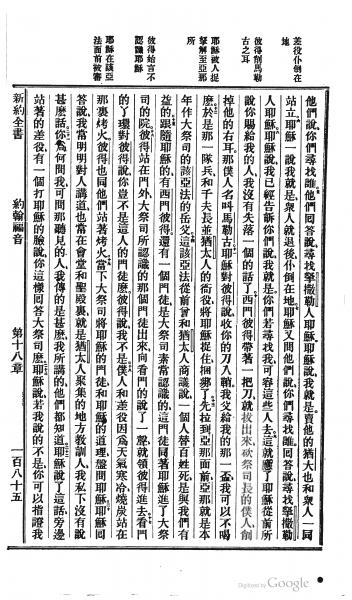 差役仆倒在
地
彼得削馬勒
古之耳
耶穌被人捉
拏解至亞那
所
彼得始言不
認識耶穌
耶穌在該亞
法面前被審
他們說、你們尋找誰、他們回答說、尋找拏撒勒人耶穌、耶穌說、我就是、賣他的猶大也和衆人一同
站立、耶穌一說我就是、衆人就退後仆倒在地、耶穌又問他們說、你們尋找誰、回答說、尋找拏撒勒
人耶穌、耶穌說、我已經告訴你們說、我就是了、你們若尋找我、可容這些人去、這就應了耶穌從前所
說、你賜給我的人、我沒有失落一個的話了、西門彼得帶著一把刀、就拔出來、砍祭司長的僕人、削
掉他的右耳、那僕人名叫馬勒古、耶穌對彼得說、收你的刀入鞘、我父給我的那一盃、我可以不喝
麽、於是那一隊兵和千夫長、並猶太人的衙役、將耶穌捉住捆綁了、先拉到亞那面前、亞那就是本
年作大祭司的該亞法的岳父、這該亞法從前曾和猶太人商議、說一個人替百姓死、是與我們有
益的、跟隨耶穌的有西門彼得、還有一個門徒、是大祭司素常認識的、這門徒同著耶穌進了大祭
司的院、彼得站在門外、大祭司所認識的那個門徒出來、向看門的說了一聲、就領彼得進去、看門
的丫環對彼得說、你豈不是這人的門徒麽、彼得說、我不是、僕人和差役、因為天氣寒冷、燒炭站在
那裏烤火、彼得也同他們站著烤火、當下大祭司將耶穌的門徒和耶穌的道理、盤問耶穌、耶穌回
答說、我當明明對人講道、也當在會堂和聖殿裏、就是猶太人聚集的地方教訓人、我私下沒有說
甚麽話、你為何問我、可問那聽見的人、我傳的是甚麽、我所講的他們都知道、耶穌說了這話、旁邊
站著的差役、有一個打耶穌的臉、說、你這樣回答大祭司麽、耶穌說、若我說的不是、你可以指證我
新約全書 約翰福音 第十八章 一百八十五
Digitized by Google